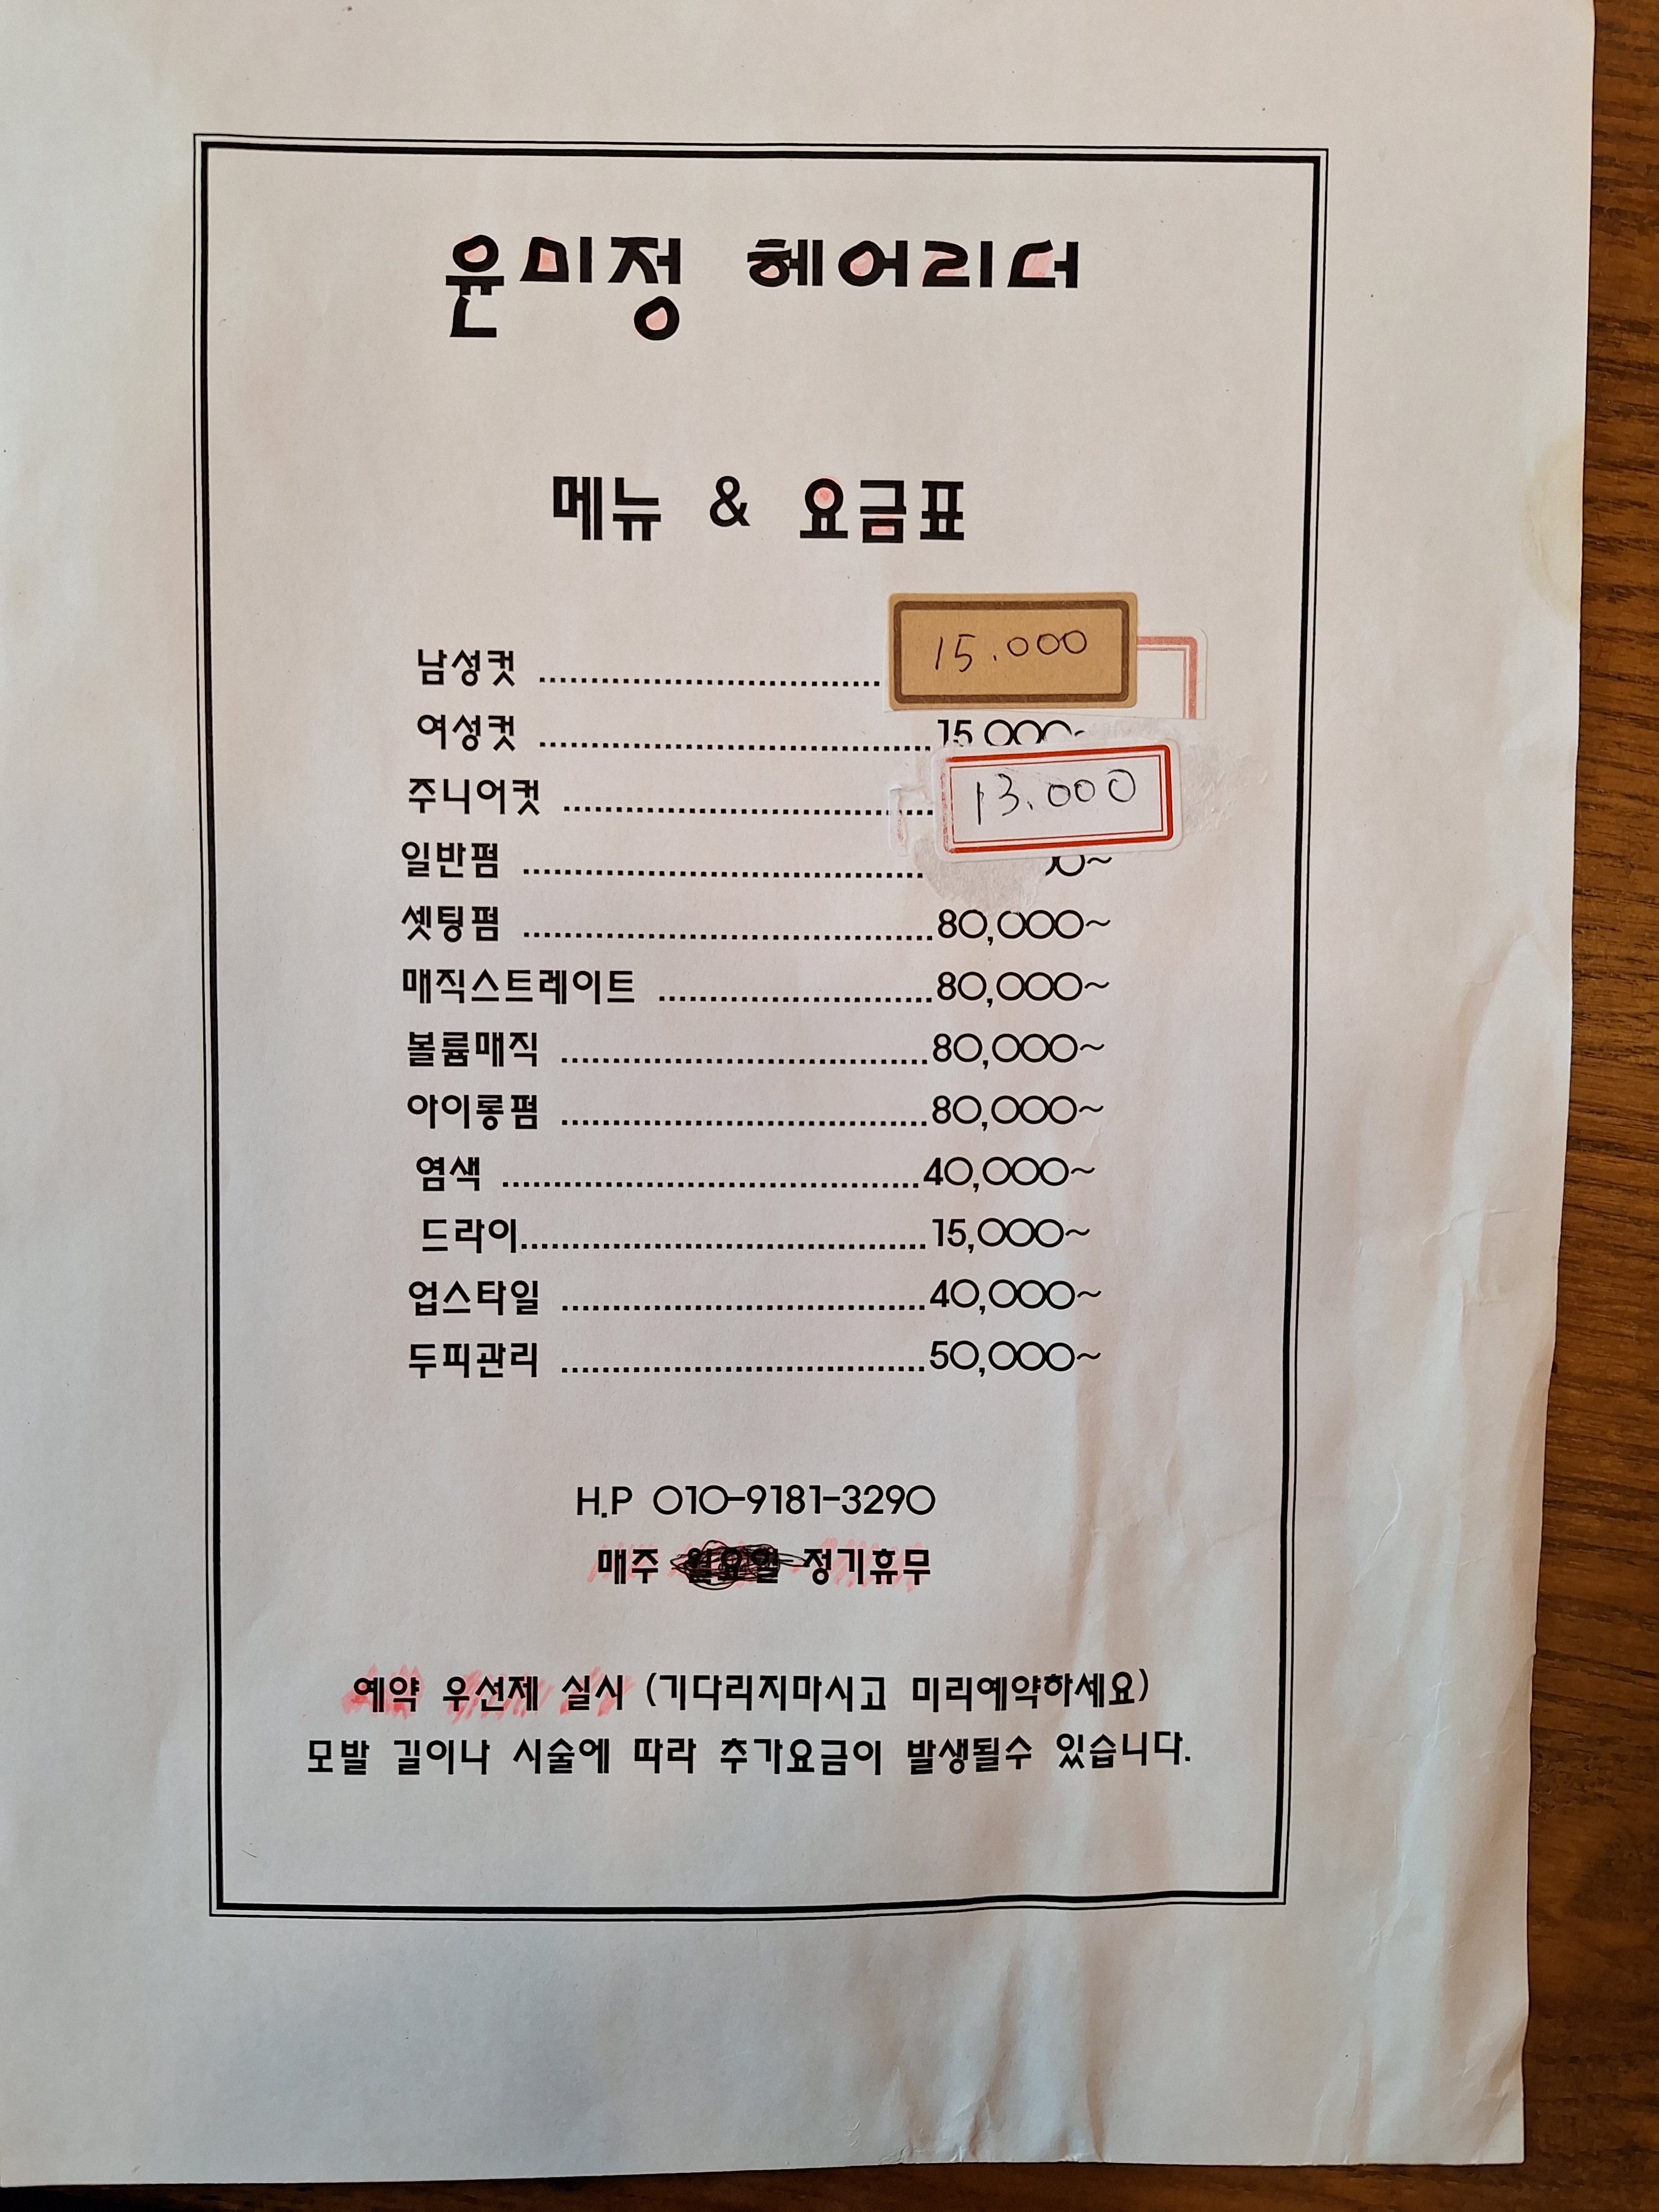 윤미정 헤어리더
메뉴 & 요금표
남성컷 ........................................ 15.000
여성컷 ........................................ 15,000~
주니어컷 ........................................ 13.000
일반펌 ........................................
셋팅펌 ........................................80,000~
매직스트레이트 ...........................80,000~
볼륨매직 ....................................80,000~
아이롱펌 ....................................80,000~
염색 .........................................40,000~
드라이........................................15,000~
업스타일 ....................................40,000~
두피관리 ....................................50,000~
H.P 010-9181-3290
매주 월요일 정기휴무
예약 우선제 실시 (기다리지마시고 미리예약하세요)
모발 길이나 시술에 따라 추가요금이 발생될수 있습니다.